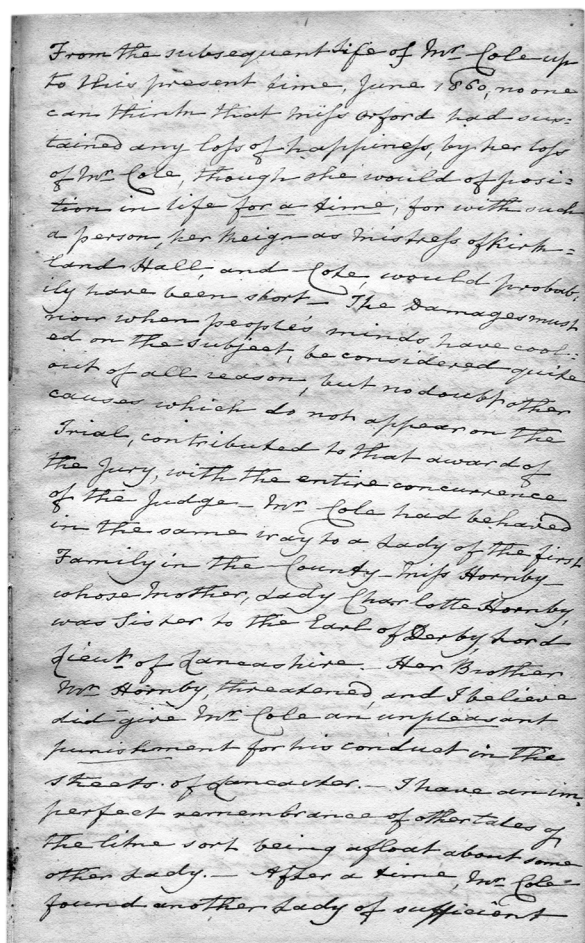 From the subsequent life of Mr. Cole up
to this present time, June 1860, no one
can think that Miss Orford had sus=
tained any loss of happiness, by her loss
of Mr Cole, though she would of posi=
tion in life for a time; for with such
a person, her Reign as Mistress of Kirk=
land Hall, and Cote, would probab
ily have been short — The Damages must
now when people's minds have cool=
ed on the subject, be considered quite
out of all reason, but no doubt other
causes which do not appear on the
Trial, contributed to that award of
the Jury, with the entire concurrence
of the Judge — Mr. Cole had behaved
in the same way to a Lady of the first
Family in the County — Miss Hornby
whose Mother, Lady Charlotte Hornby,
was Sister to the Earl of Derby, Lord
Lieut. of Lancashire. — Her Brother
Mr Hornby, threatened, and I believe
did give Mr Cole an unpleasant
punishment for his conduct in the
streets of Lancaster. — I have an im=
perfect remembrance of other tales of
the like sort being afloat about some
other Lady. — After a time, Mr. Cole
found another Lady of sufficient